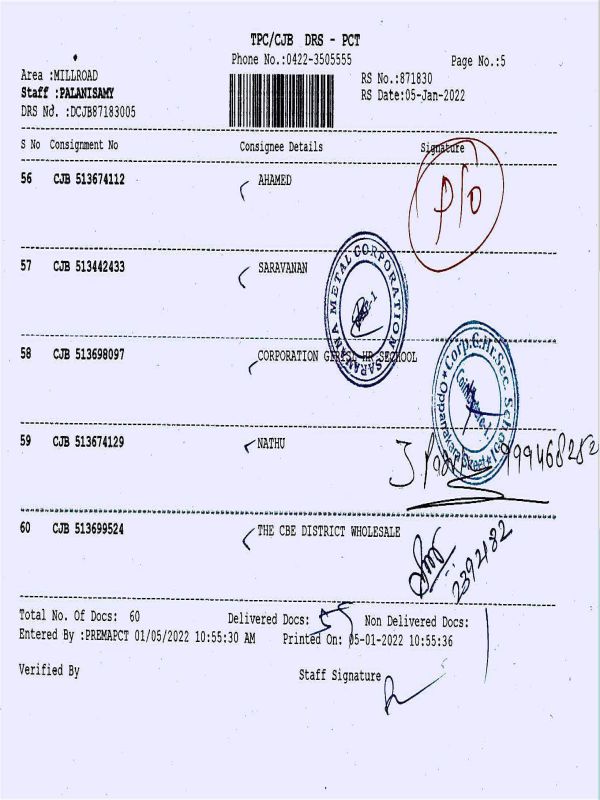 TPC/CJB DRS - PCT
Phone No.:0422-3505555
Page No.:5
Area :MILLROAD
RS No.:871830
Staff :PALANISAMY
RS Date:05-Jan-2022
DRS No. :DCJB87183005
S No Consignment No Consignee Details Signature
56 CJB 513674112 AHAMED
P/O
57 CJB 513442433 SARAVANAN
METAL CORPORATION
58 CJB 513698097 CORPORATION HR
Corp.G.Hr.Sec. School
59 CJB 513674129 NATHU
60 CJB 513699524 THE CBE DISTRICT WHOLESALE
2392482
Total No. Of Docs: 60 Delivered Docs: Non Delivered Docs:
Entered By :PREMAPCT 01/05/2022 10:55:30 AM Printed On: 05-01-2022 10:55:36
Verified By Staff Signature